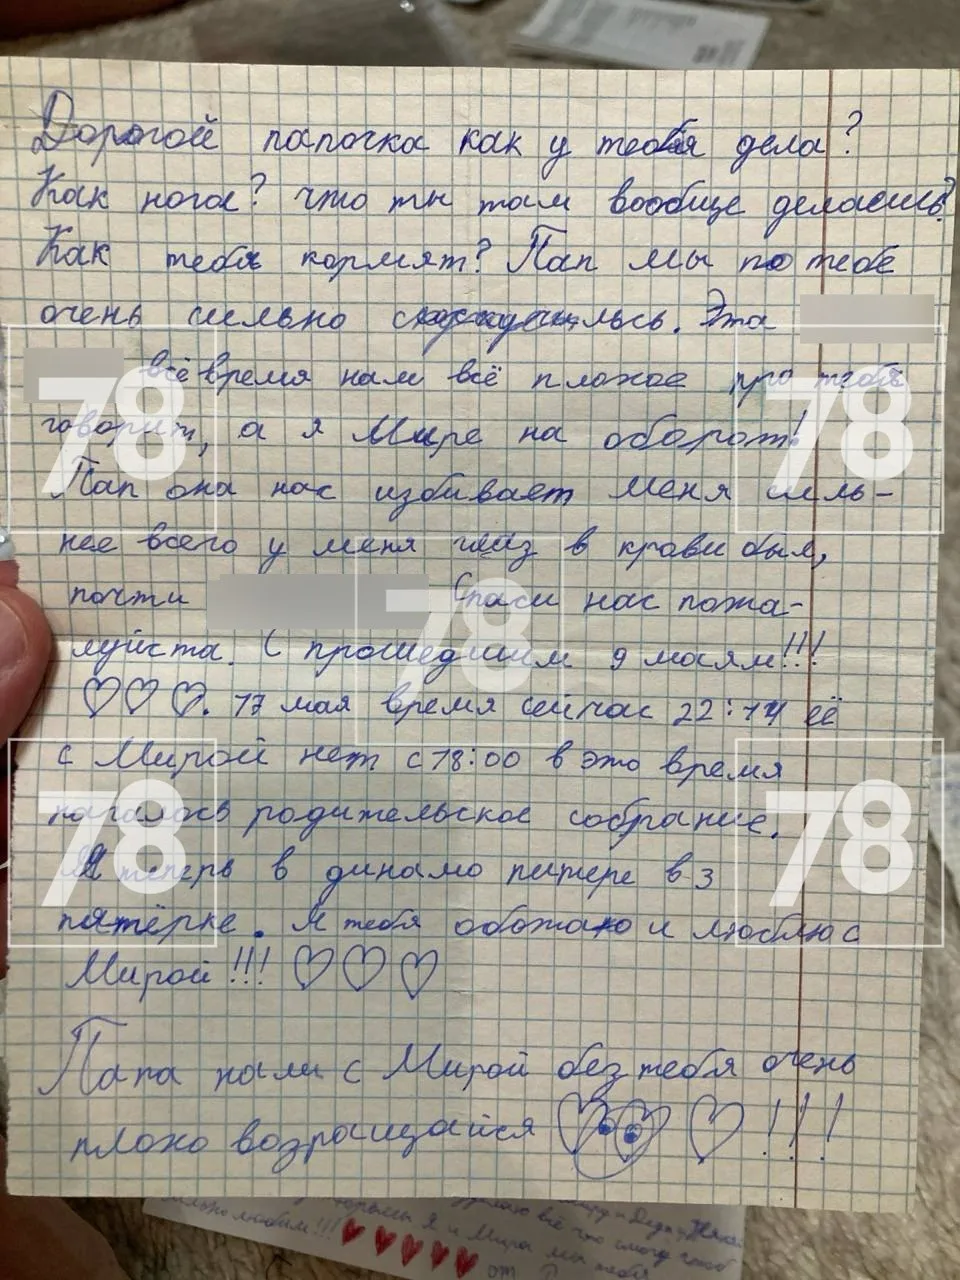 Дорогой папочка как у тебя дела?
Как нога? что ты там вообще делаешь?
Как тебя кормят? Пап мы по тебе
очень сильно Эта
всё время нам всё плохое про тебя
говорит, а я Мире на оборот!
Пап она нас избивает меня силь-
нее всего у меня глаз в крови был,
почти Спаси нас пожа-
луйста. С прошедшим 9 маям!!!
17 мая время сейчас 22:14 её
с Мирой нет с 18:00 в это время
началось родительское собрание.
Я теперь в динамо питере в 3
пятёрке. Я тебя обожаю и люблю с
Мирой!!!
Папа нам с Мирой без тебя очень
плохо возращайся !!!
78
78
78
78
78
я и Мира мы тебя
любим!!!
от